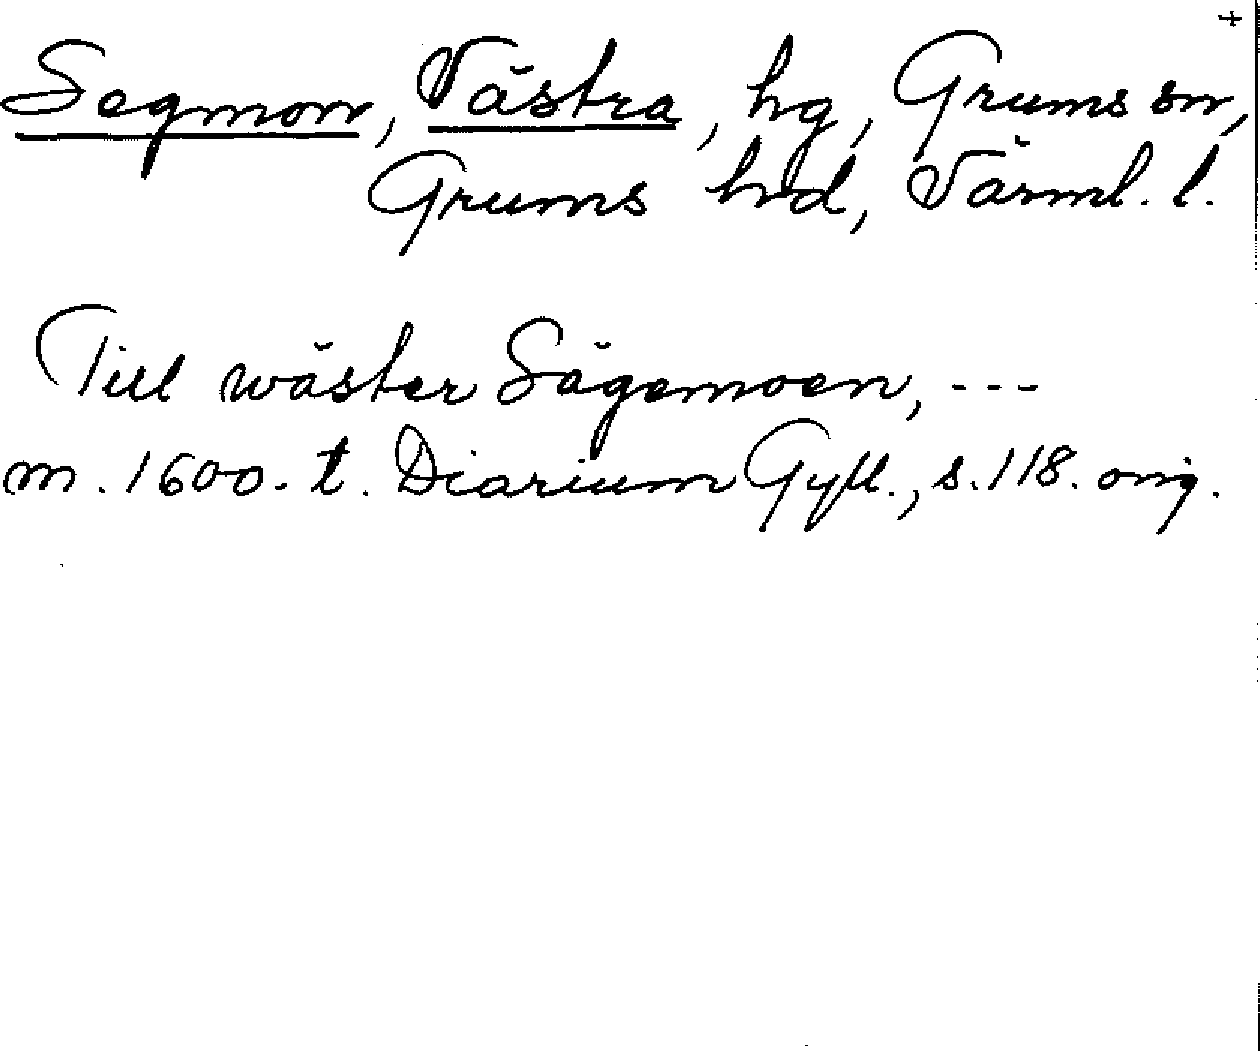 +
Segmon, Västra, hg, Grums sn,
Grums hd, Värml. l.
Till wäster Sägemoen, ---
m. 1600-t. Diarium Gyll., s. 118. orig.